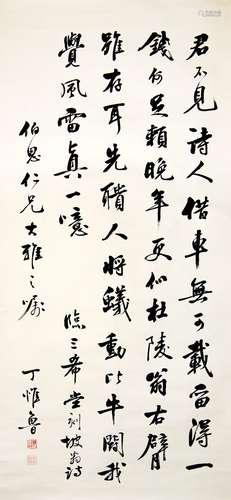 君不見詩人借車無可載留得一
錢何足賴晚年更似杜陵翁右臂
雖存耳先聵人將蟻動比牛鬪我
覺風雷真一噫 臨三希堂刻坡翁詩
伯思仁兄大雅之嘱
丁惟魯